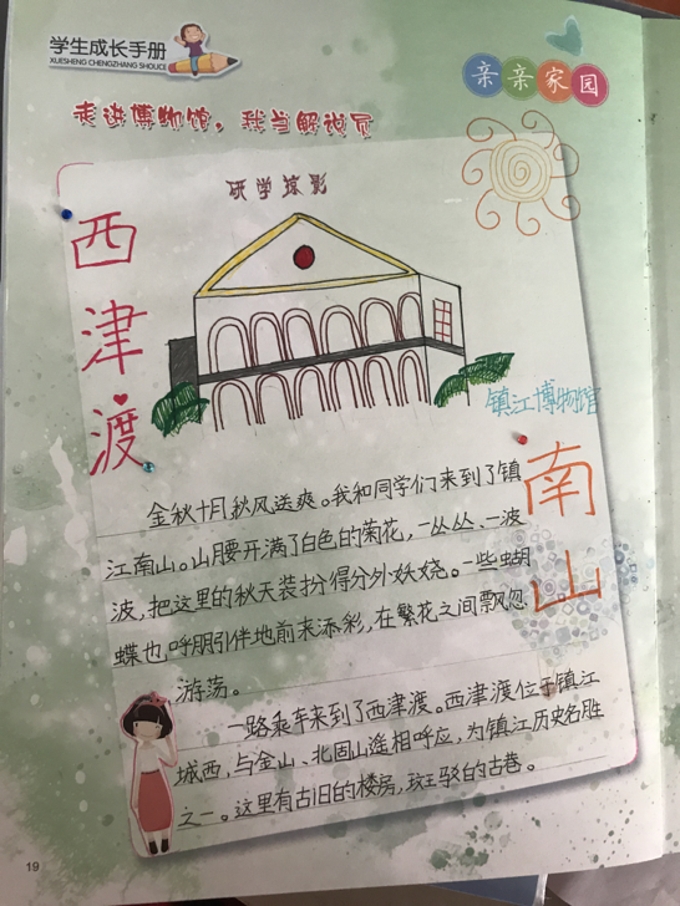 学生成长手册
XUESHENG CHENGZHANG SHOUCE
亲亲家园
走进博物馆，我当解说员
研学掠影
西津渡
镇江博物馆
南山
金秋十月秋风送爽。我和同学们来到了镇
江南山。山腰开满了白色的菊花，一丛丛、一波
波，把这里的秋天装扮得分外妖娆。一些蝴
蝶也呼朋引伴地前来添彩，在繁花之间飘忽
游荡。
一路乘车来到了西津渡。西津渡位于镇江
城西，与金山、北固山遥相呼应，为镇江历史名胜
之一。这里有古旧的楼房，斑驳的古巷。
19